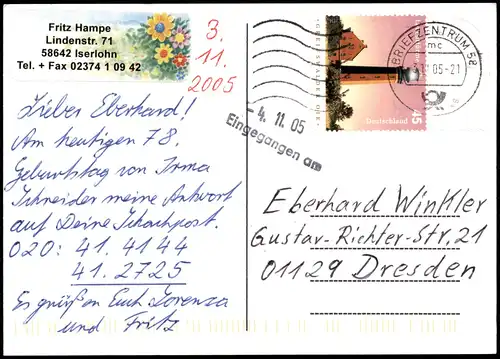 Fritz Hampe
Lindenstr. 71
58642 Iserlohn
Tel. + Fax 02374 1 09 42
3.
11.
2005
Lieber Eberhard!
Am heutigen 78.
Geburtstag von Irma
Schneider meine Antwort
auf Deine Schachpost.
020: 41. 4144
42. 2725
Es grüßen Euch Lorenza
und Fritz
BRIEFZENTRUM 58
mc
05-21
Deutschland
45
- 4. 11. 05
Eingegangen am
Eberhard Winkler
Gustav-Richter-Str. 21
01129 Dresden